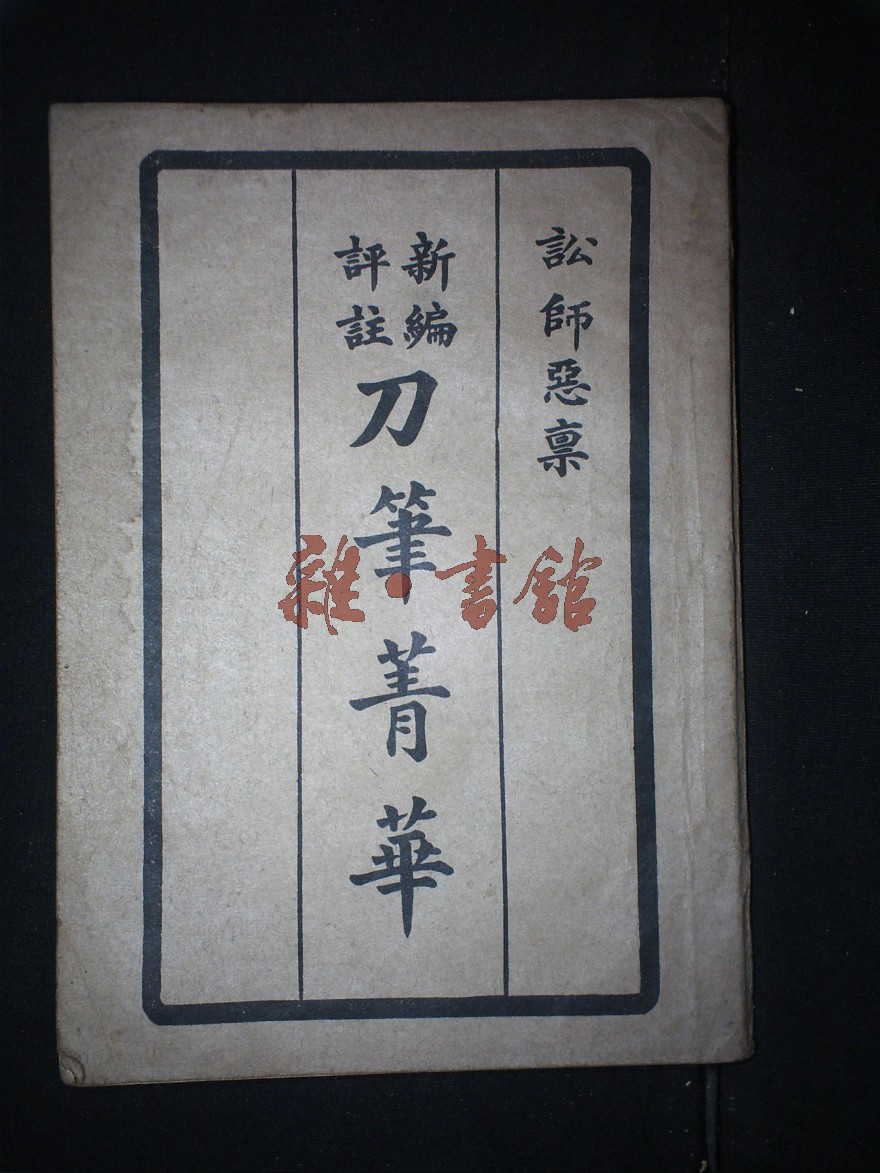 訟師惡禀
新編
評註
刀筆菁華
雜·書舘